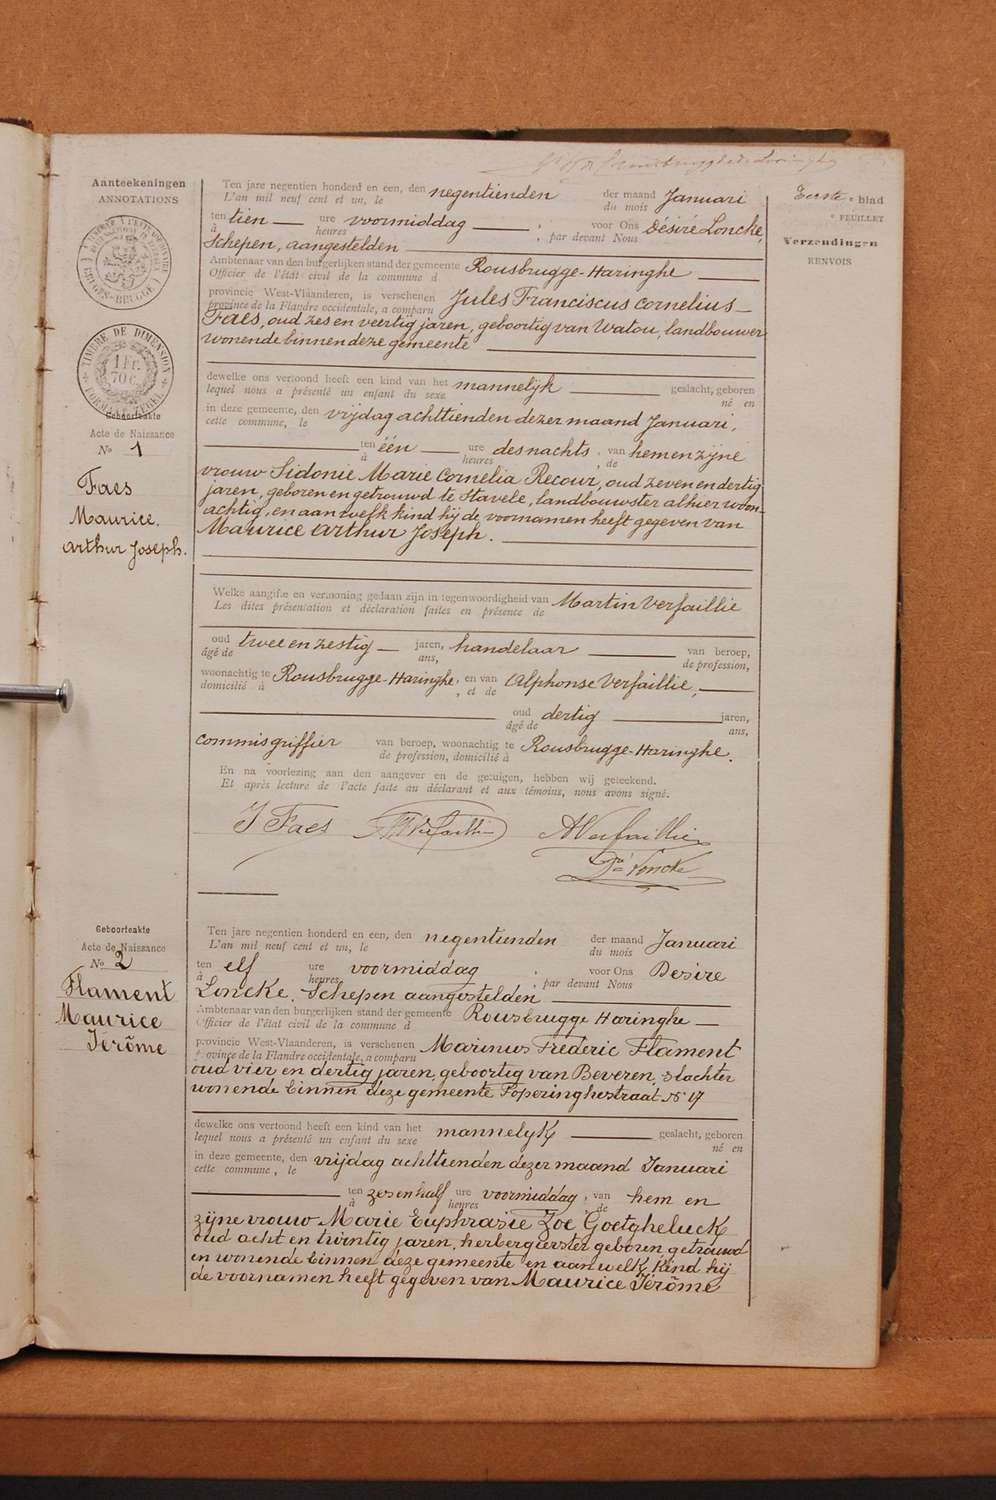 Aanteekeningen
ANNOTATIONS
TIMBRE DE DIMENSION
1 Fr.
70 C.
Geboorteakte
Acte de Naissance
No 1
Faes
Maurice.
Arthur Joseph.
Ten jare negentien honderd en een, den negentienden der maand Januari
L'an mil neuf cent et un, le du mois
ten tien ure voormiddag, voor Ons Désiré Loncke,
à heures, par devant Nous
Schepen, aangestelden
Ambtenaar van den burgerlijken stand der gemeente Rousbrugge-Haringhe
Officier de l'état civil de la commune d
provincie West-Vlaanderen, is verschenen Jules Franciscus Cornelius
province de la Flandre occidentale, a comparu
Faes, oud zes en veertig jaren, geboortig van Watou, landbouwer
wonende binnen deze gemeente
dewelke ons vertoond heeft een kind van het mannelijk geslacht, geboren
lequel nous a présenté un enfant du sexe né en
in deze gemeente, den vrijdag achttienden dezer maand Januari,
cette commune, le
ten één ure des nachts, van hem en zijne
à heures, de
vrouw Sidonie Marie Cornelia Recour, oud zeven en dertig
jaren, geboren en getrouwd te Stavele, landbouwster alhier woon-
achtig, en aan welk kind hij de voornamen heeft gegeven van
Maurice Arthur Joseph.
Welke aangifte en vertooning gedaan zijn in tegenwoordigheid van Martin Verfaillie
Les dites présentation et déclaration faites en présence de
oud twee en zestig jaren, handelaar van beroep,
âgé de ans, de profession,
woonachtig te Rousbrugge-Haringhe, en van Alphonse Verfaillie,
domicilié à , et de
oud dertig jaren,
âgé de ans,
commisgriffier van beroep, woonachtig te Rousbrugge-Haringhe.
de profession, domicilié à
En na voorlezing aan den aangever en de getuigen, hebben wij geteekend.
Et après lecture de l'acte faite au déclarant et aux témoins, nous avons signé.
J Faes Verfaillie A Verfaillie
Dé Loncke
Eerste blad
e FEUILLET
Verzendingen
RENVOIS
Geboorteakte
Acte de Naissance
No 2
Flament
Maurice
Jérôme
Ten jare negentien honderd en een, den negentienden der maand Januari
L'an mil neuf cent et un, le du mois
ten elf ure voormiddag, voor Ons Desire
à heures, par devant Nous
Loncke, Schepen aangestelden
Ambtenaar van den burgerlijken stand der gemeente Rousbrugge Haringhe
Officier de l'état civil de la commune d
provincie West-Vlaanderen, is verschenen Marinus Frederic Flament
province de la Flandre occidentale, a comparu
oud vier en dertig jaren, geboortig van Beveren, slachter
wonende binnen deze gemeente Poperinghestraat No 17
dewelke ons vertoond heeft een kind van het mannelyk geslacht, geboren
lequel nous a présenté un enfant du sexe né en
in deze gemeente, den vrijdag achttienden dezer maand Januari
cette commune, le
ten zesenhalf ure voormiddag, van hem en
à heures, de
zijne vrouw Marie Euphrasie Zoe Goetgheluck
oud acht en twintig jaren, herbergierster geboren getrouwd
en wonende binnen deze gemeente en aan welk kind hij
de voornamen heeft gegeven van Maurice Jérôme